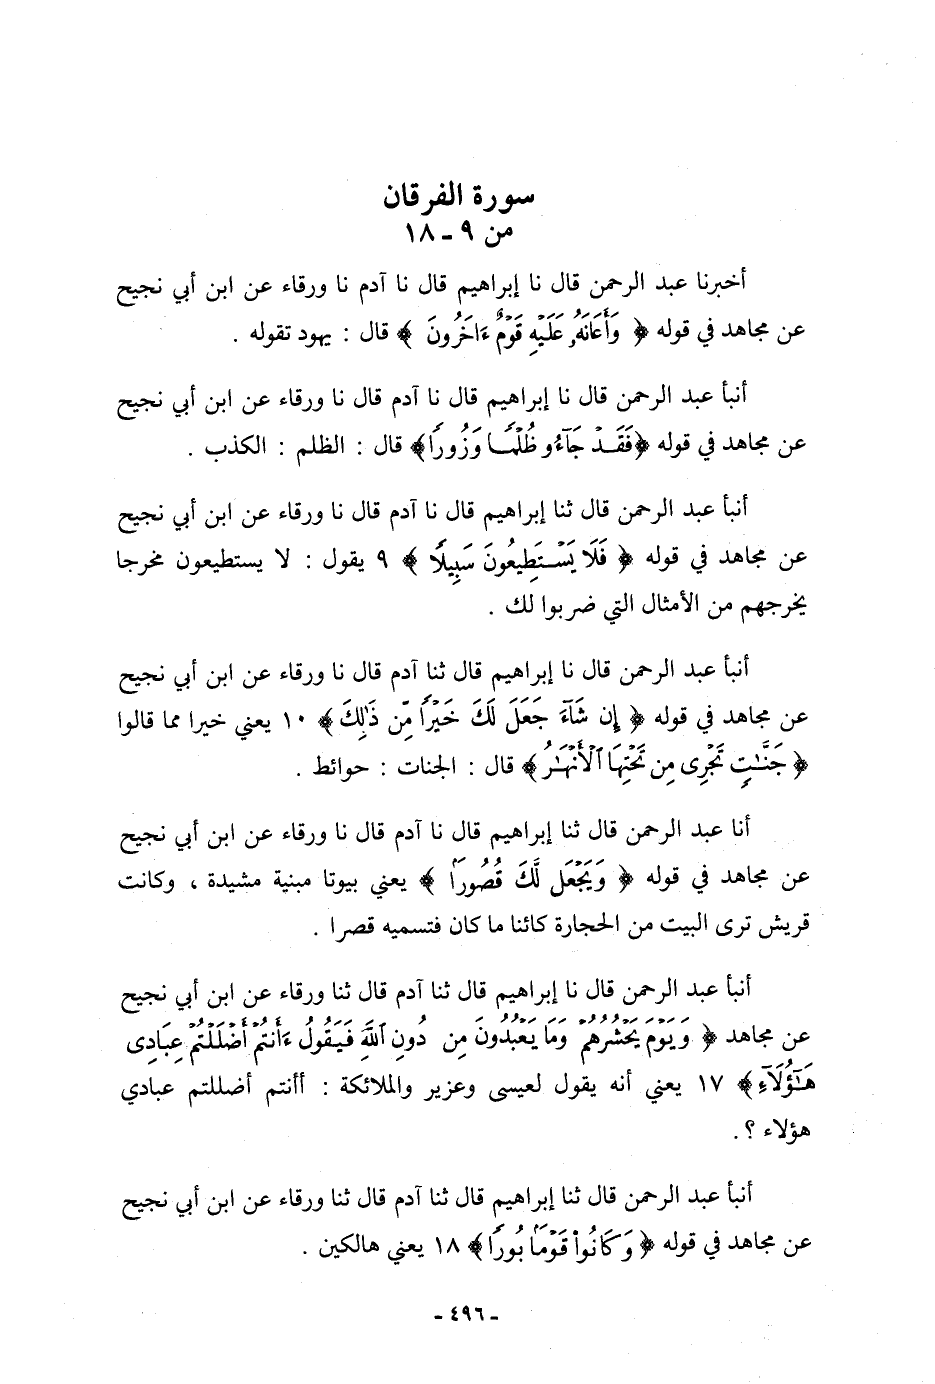 سورة الفرقان
من ٩ - ١٨
أخبرنا عبد الرحمن قال نا إبراهيم قال نا آدم نا ورقاء عن ابن أبي نجيح
عن مجاهد في قوله ﴿ وَأَعَانَهُۥ عَلَيْهِ قَوْمٌ ءَاخَرُونَ ﴾ قال : يهود تقوله .
أنبأ عبد الرحمن قال نا إبراهيم قال نا آدم قال نا ورقاء عن ابن أبي نجيح
عن مجاهد في قوله ﴿فَقَدْ جَآءُو ظُلْمًا وَزُورًا﴾ قال : الظلم : الكذب .
أنبأ عبد الرحمن قال ثنا إبراهيم قال نا آدم قال نا ورقاء عن ابن أبي نجيح
عن مجاهد في قوله ﴿ فَلَا يَسْتَطِيعُونَ سَبِيلًا ﴾ ٩ يقول : لا يستطيعون مخرجا
يخرجهم من الأمثال التي ضربوا لك .
أنبأ عبد الرحمن قال نا إبراهيم قال ثنا آدم قال نا ورقاء عن ابن أبي نجيح
عن مجاهد في قوله ﴿ إِن شَآءَ جَعَلَ لَكَ خَيْرًا مِّن ذَٰلِكَ ﴾ ١٠ يعني خيرا مما قالوا
﴿ جَنَّـٰتٍ تَجْرِى مِن تَحْتِهَا ٱلْأَنْهَـٰرُ ﴾ قال : الجنات : حوائط .
أنا عبد الرحمن قال ثنا إبراهيم قال نا آدم قال نا ورقاء عن ابن أبي نجيح
عن مجاهد في قوله ﴿ وَيَجْعَل لَّكَ قُصُورًا ﴾ يعني بيوتا مبنية مشيدة ، وكانت
قريش ترى البيت من الحجارة كائنا ما كان فتسميه قصرا .
أنبأ عبد الرحمن قال نا إبراهيم قال ثنا آدم قال ثنا ورقاء عن ابن أبي نجيح
عن مجاهد ﴿ وَيَوْمَ يَحْشُرُهُمْ وَمَا يَعْبُدُونَ مِن دُونِ ٱللَّهِ فَيَقُولُ ءَأَنتُمْ أَضْلَلْتُمْ عِبَادِى
هَـٰٓؤُلَآءِ﴾ ١٧ يعني أنه يقول لعيسى وعزير والملائكة : أأنتم أضللتم عبادي
هؤلاء ؟ .
أنبأ عبد الرحمن قال ثنا إبراهيم قال ثنا آدم قال ثنا ورقاء عن ابن أبي نجيح
عن مجاهد في قوله ﴿ وَكَانُوا۟ قَوْمًۢا بُورًا ﴾ ١٨ يعني هالكين .
- ٤٩٦ -